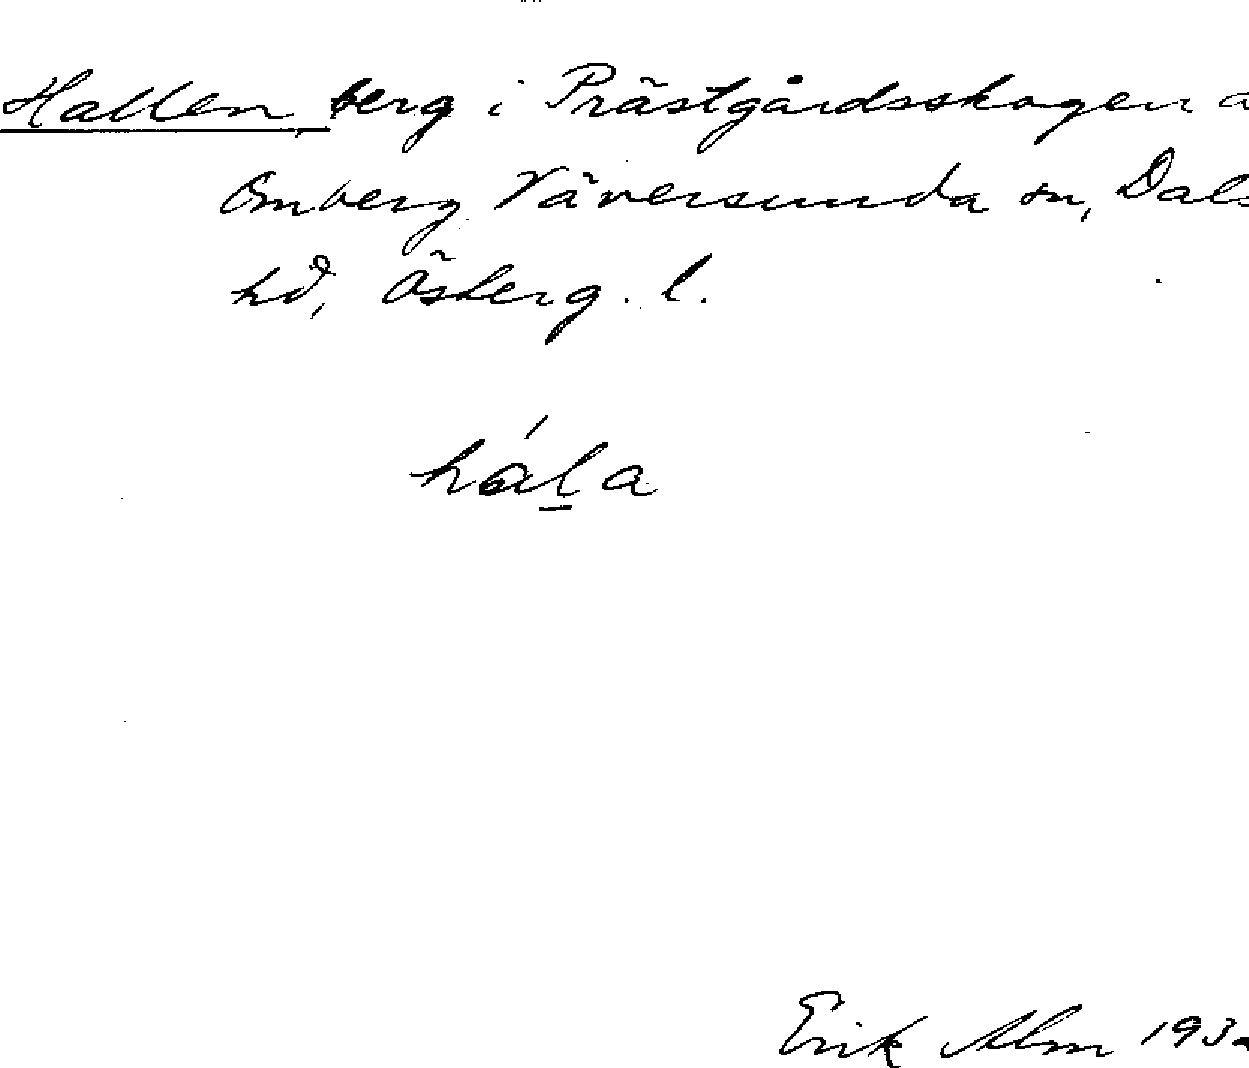 Hallen, berg i Prästgårdsskogen a
Omberg, Väversunda sn, Dals
hd, Österg. l.
hála
Erik Alm 193